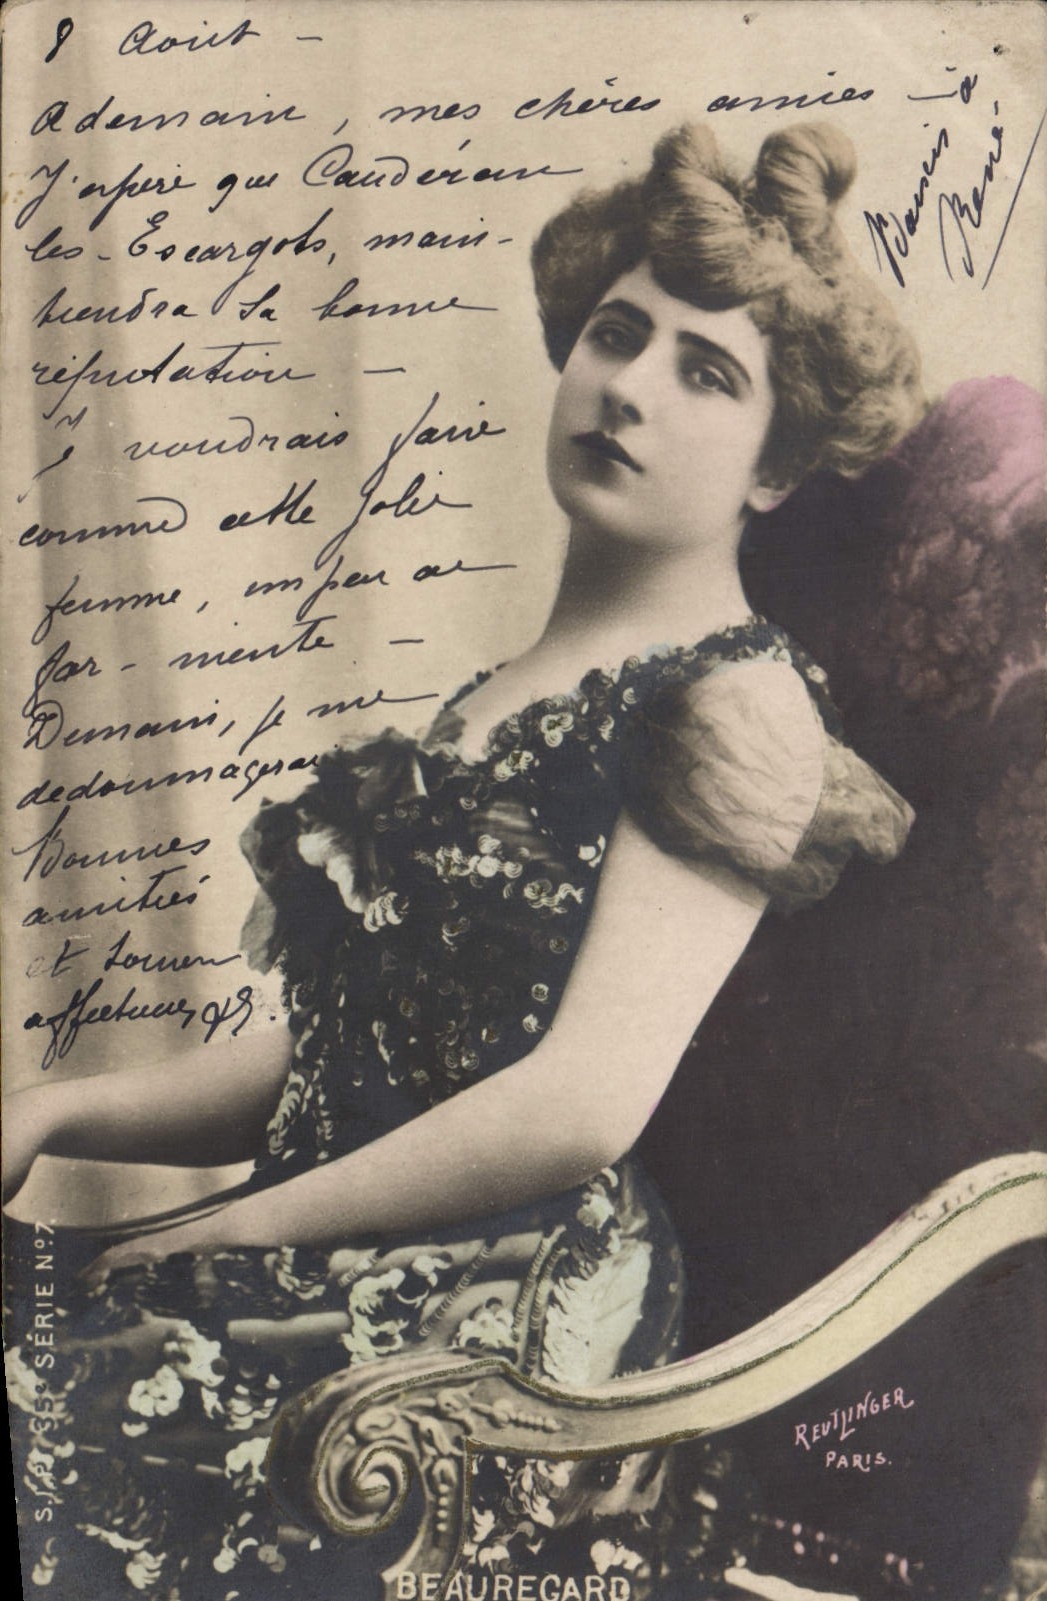 8 Août -
A demain, mes chères amies -
J'espère que Caudéran
les-Escargots, main-
tiendra sa bonne
réputation -
Je voudrais faire
comme cette jolie
femme, un peu de
far-niente -
Demain, je me
dedommagerai
Bonnes
amitiés
et
affectueux
Baisers à
René
S.I.P. 35e SÉRIE N° 7.
REUTLINGER
PARIS.
BEAUREGARD